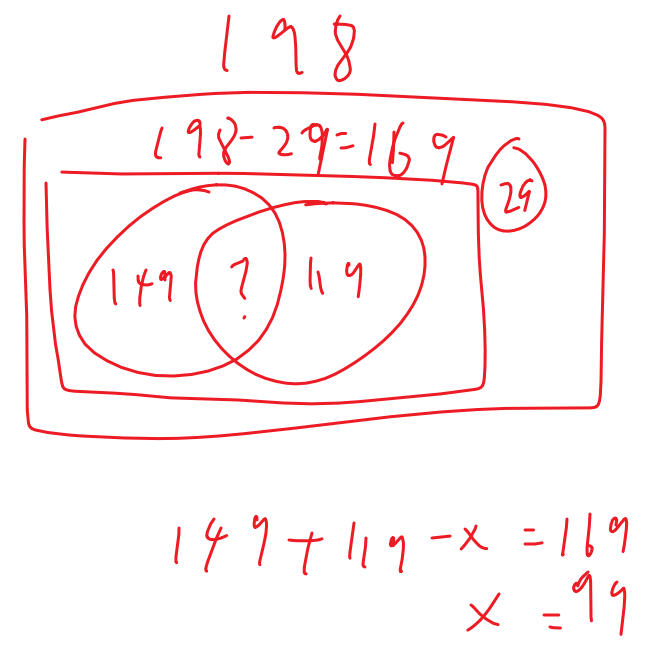 198
198-29=169
29
149 ? 119
149+119-x=169
x=99